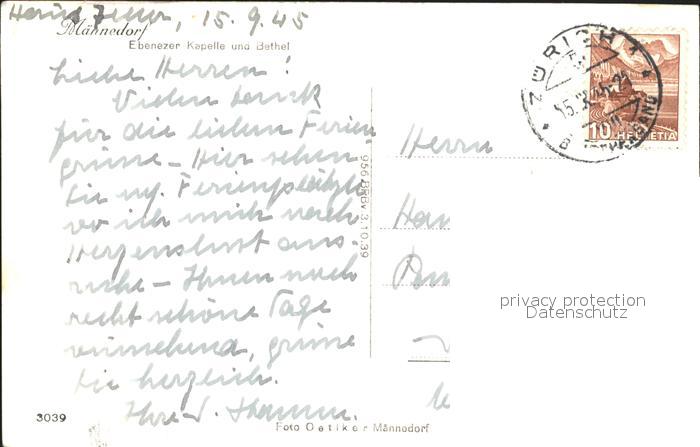 15.9.45
Männedorf
Ebenezer Kapelle und Bethel
Liebe Herren!
Vielen Dank
für die lieben Ferien
grüsse – Hier sehen
Sie m. Ferienplätzli
wo ich mich nach
Herzenslust aus-
ruhe – Ihnen noch
recht schöne Tage
wünschend, grüsse
Sie herzlich.
Ihre
956 BRBv 3.10.39
Herrn
ZÜRICH 1
10 HELVETIA
privacy protection
Datenschutz
3039
Foto Oetiker Männedorf